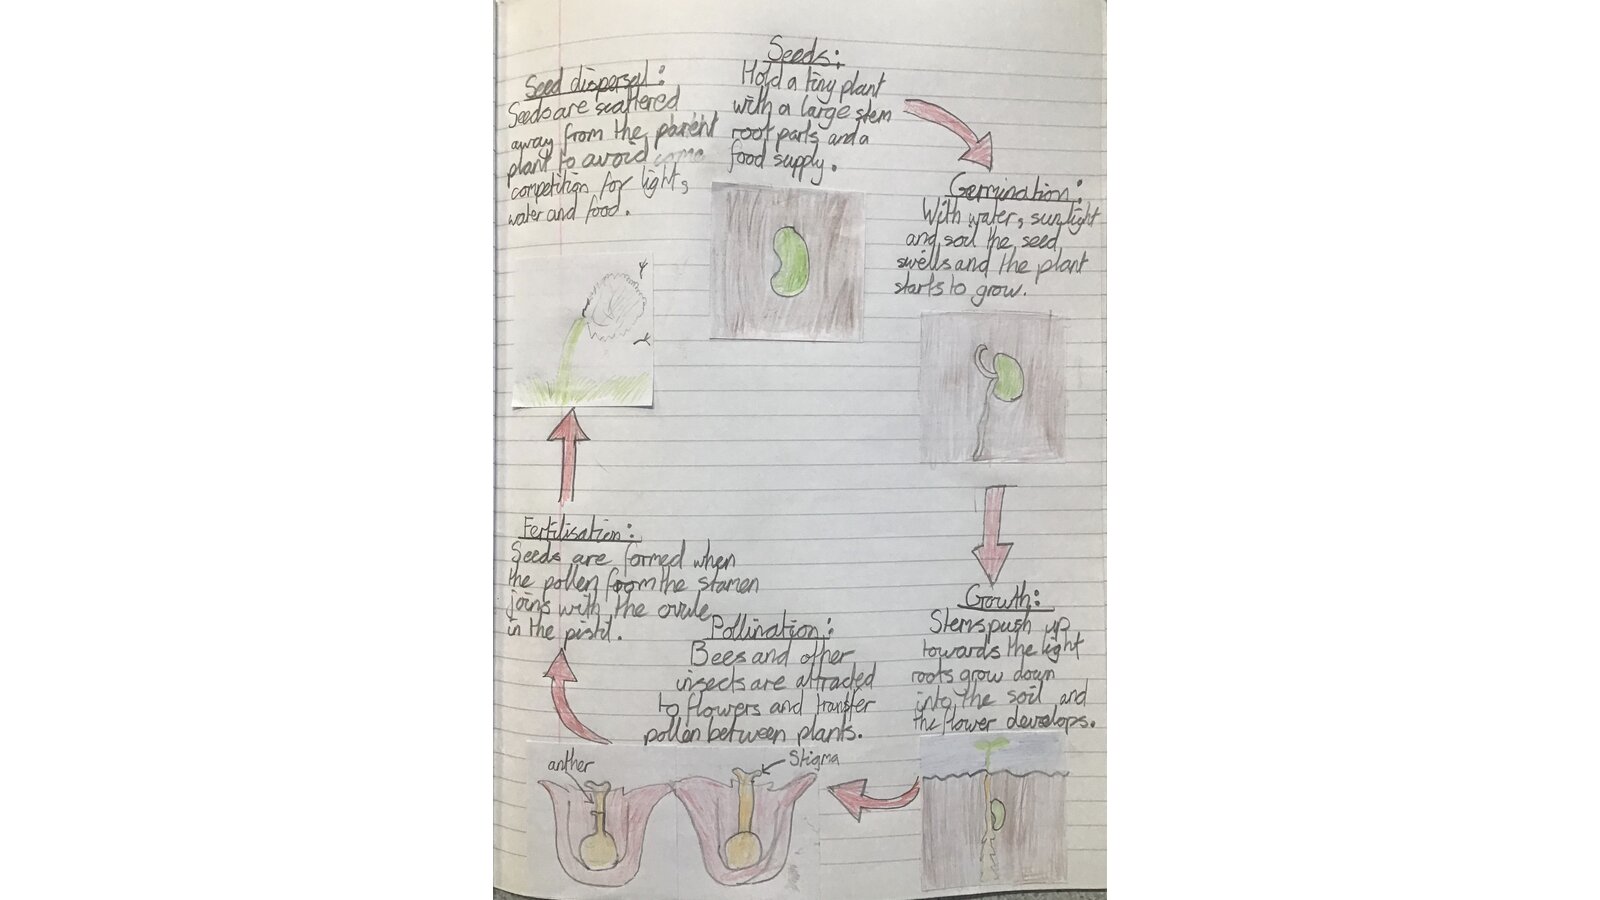 Seeds:
Hold a tiny plant
with a large stem
root parts and a
food supply.
Germination:
With water, sunlight
and soil the seed
swells and the plant
starts to grow.
Growth:
Stems push up
towards the light
roots grow down
into the soil and
the flower develops.
Pollination:
Bees and other
insects are attracted
to flowers and transfer
pollen between plants.
anther
Stigma
Fertilisation:
Seeds are formed when
the pollen from the stamen
joins with the ovule
in the pistil.
Seed dispersal:
Seeds are scattered
away from the parent
plant to avoid
competition for light,
water and food.